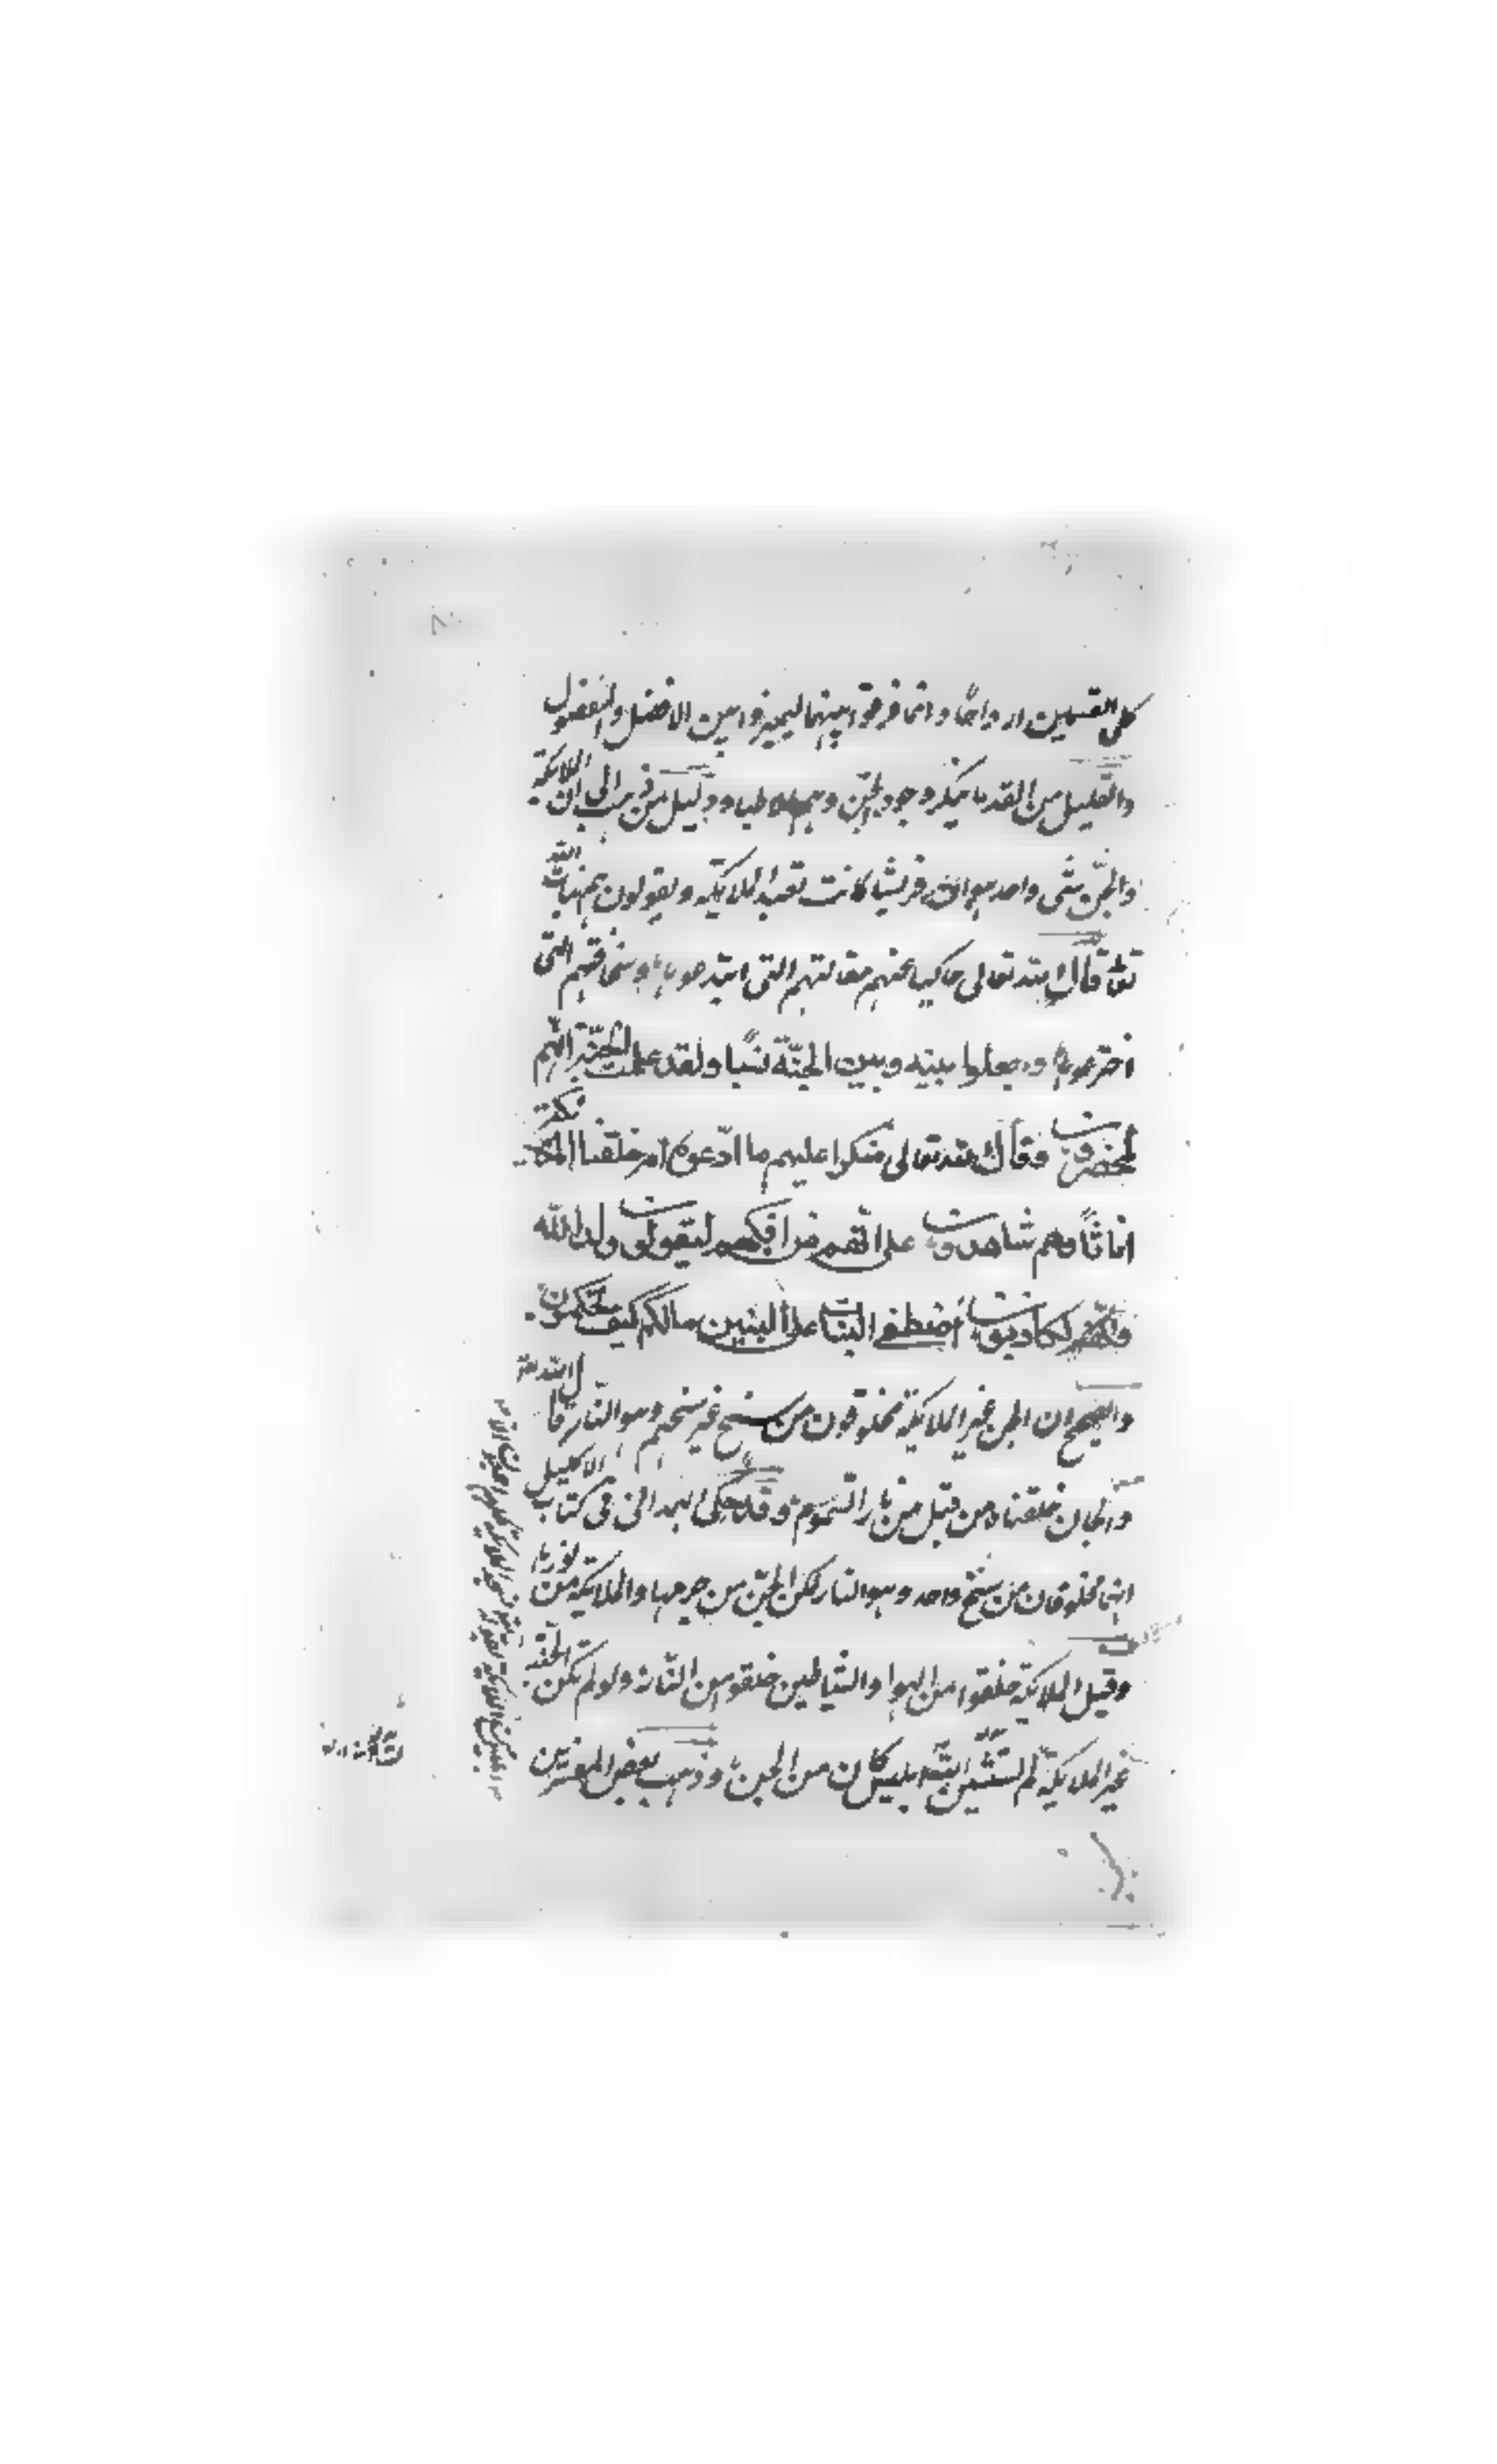 كل القسمين ارواحًا وانما فرقوا بينهما ليميزوا بين الافضل والمفضول
والقليل من القدما ينكر وجود الجن وهم الاطباء ودليل من ذهب الى ان الملايكة
والجن شى واحد هو ان قريشا كانت تعبد الملايكة ويقولون هم بنات الله
تعالى فقال الله تعالى حاكيا عنهم مقالتهم التى ابتدعوها وسخافتهم التى
اخترعوها وجعلوا بينه وبين الجنّة نسبًا ولقد علمت الجنة انهم
لمحضرون وقال الله تعالى منكرا عليهم ما ادّعوه ام خلقنا الملائكة
اناثًا وهم شاهدون على انهم من افكهم ليقولون ولد الله
وانهم لكاذبون اصطفى البنات على البنين مالكم كيف تحكمون
والصحيح ان الجن غير الملايكة مخلوقون من سنخ غير سنخهم وهو النار قال الله تع
والجان خلقناه من قبل من نار السموم وقد حكى الهمدانى فى كتاب الاكليل
انهما مخلوقان من سنخ واحد وهو النار لكن الجن من جرمها والملايكة من نورها
وقيل الملايكة خلقوا من الهوا والشياطين خلقوا من النار ولو لم تكن الجن
غير الملايكة لم يستثن الله ابليس كان من الجن وذهب بعض المفسرين